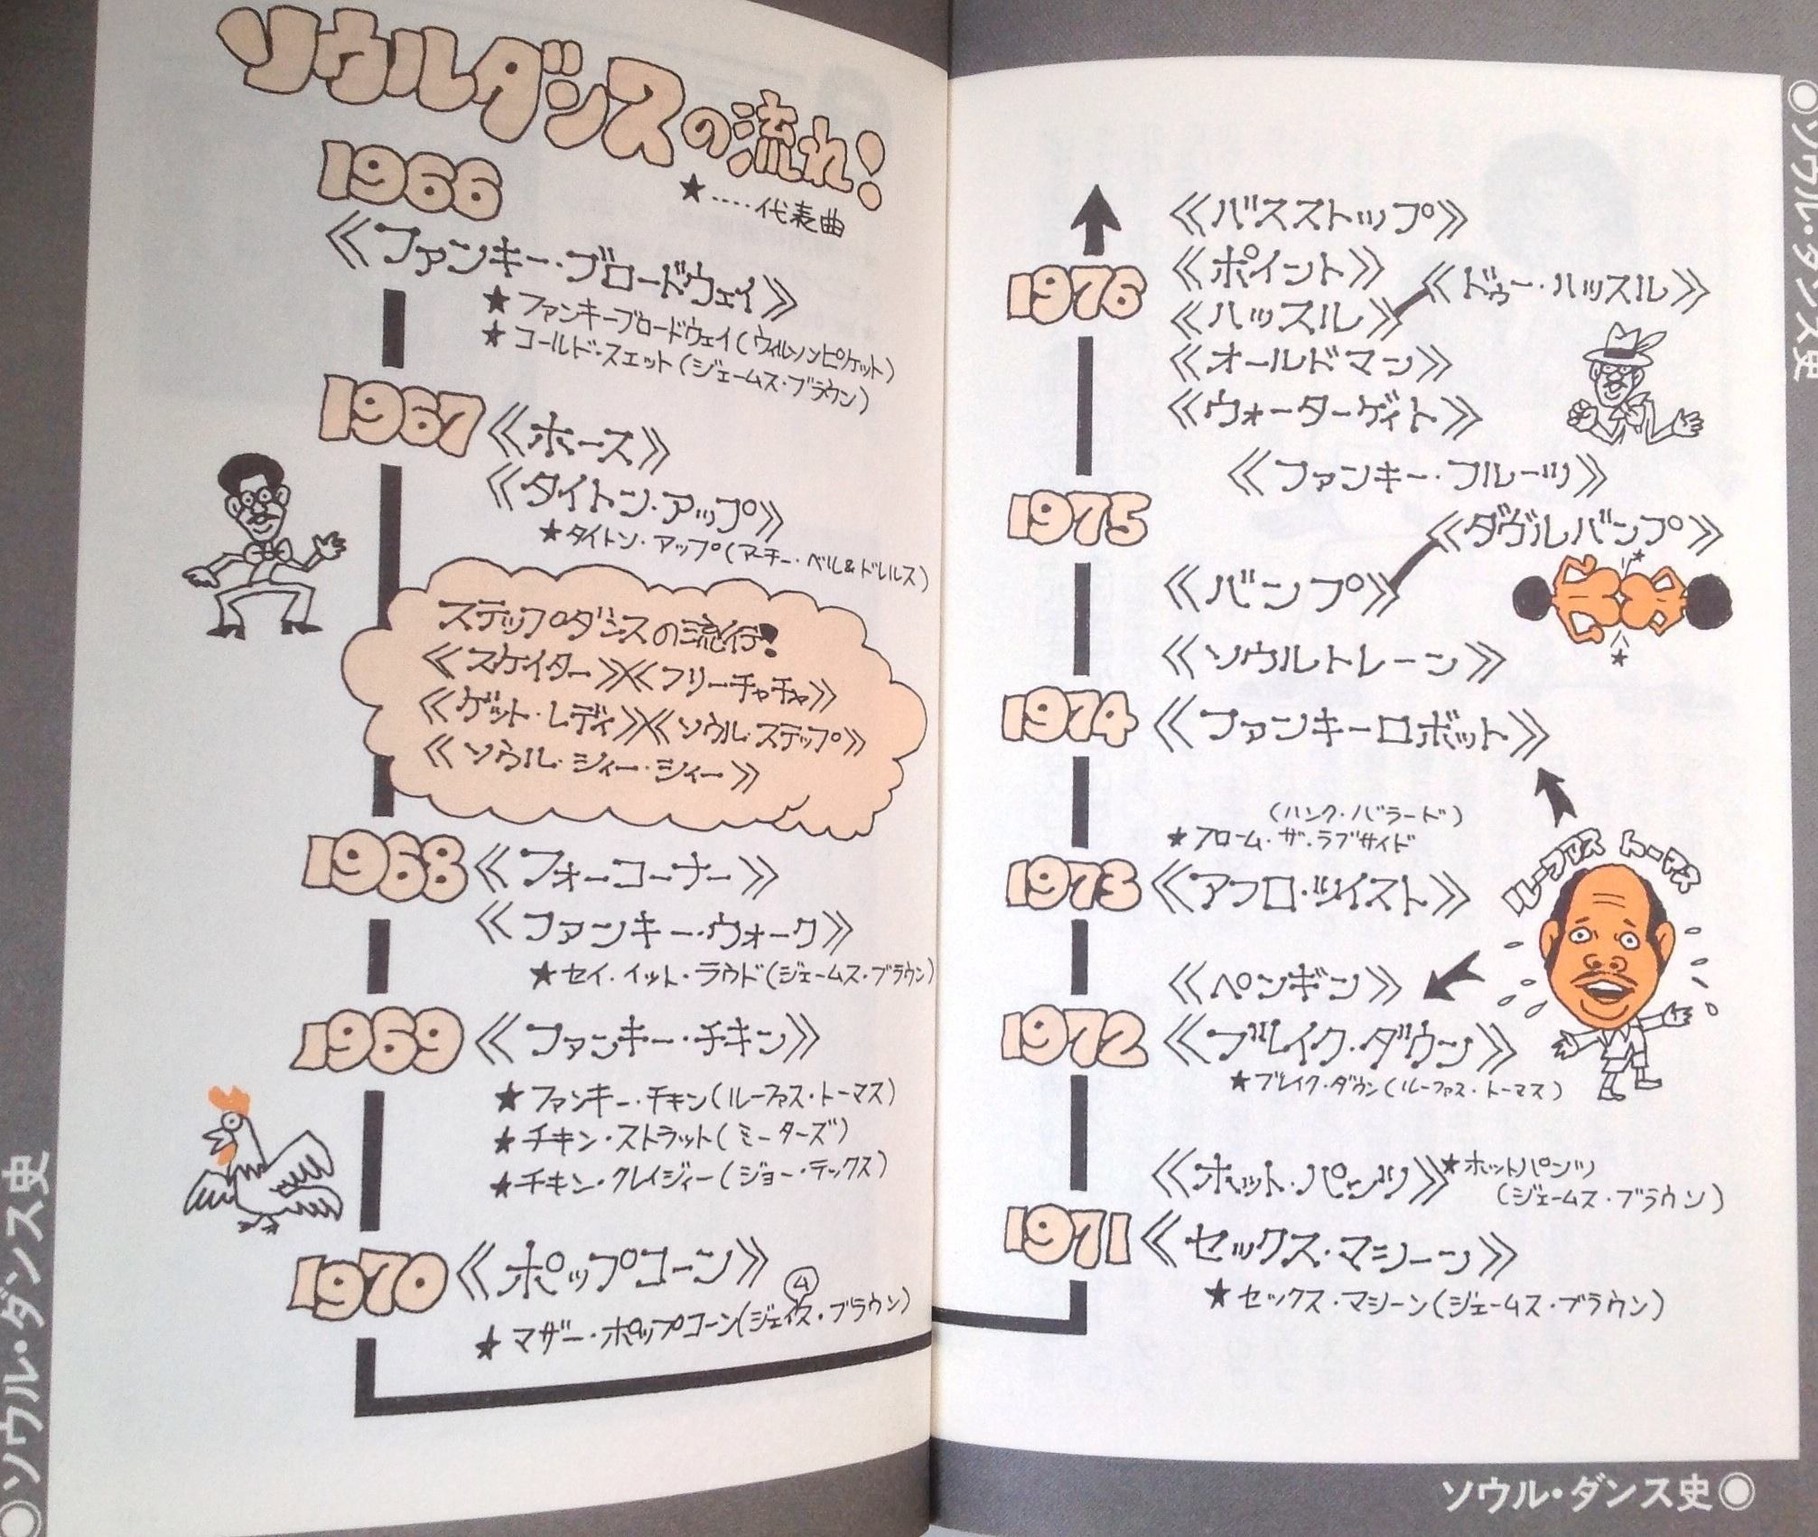 ソウルダンスの流れ!
★‥‥代表曲
1966
《ファンキー・ブロードウェイ》
★ファンキーブロードウェイ(ウィルソンピケット)
★コールド・スエット(ジェームス・ブラウン)
1967
《ホース》
《タイトン・アップ》
★タイトン・アップ(アーチー・ベル&ドレルス)
ステップダンスの流行!
《スケイター》《フリーチャチャ》
《ゲット・レディ》《ソウル・ステップ》
《ソウル・ジィー・ジィー》
1968
《フォーコーナー》
《ファンキー・ウォーク》
★セイ・イット・ラウド(ジェームス・ブラウン)
1969
《ファンキー・チキン》
★ファンキー・チキン(ルーファス・トーマス)
★チキン・ストラット(ミーターズ)
★チキン・クレイジィー(ジョー・テックス)
1970
《ポップコーン》
★マザー・ポップコーン(ジェイムス・ブラウン)
◉ソウル・ダンス史
《バスストップ》
1976
《ポイント》
《ドゥー・ハッスル》
《ハッスル》
《オールドマン》
《ウォーターゲイト》
《ファンキー・フルーツ》
1975
《ダヴルバンプ》
《バンプ》
《ソウルトレーン》
1974
《ファンキーロボット》
(ハンク・バラード)
★フローム・ザ・ラブサイド
1973
《アフロ・ツイスト》
ルーファス トーマス
《ペンギン》
1972
《ブレイク・ダウン》
★ブレイク・ダウン(ルーファス・トーマス)
《ホット・パンツ》★ホットパンツ
(ジェームス・ブラウン)
1971
《セックス・マシーン》
★セックス・マシーン(ジェームス・ブラウン)
◉ソウル・ダンス史
ソウル・ダンス史◉